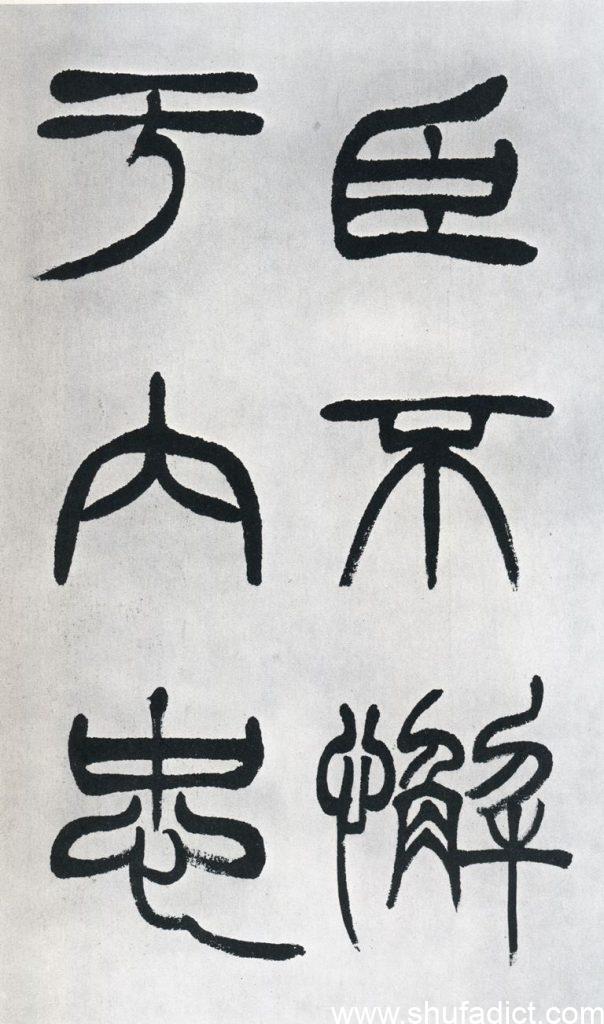 臣不懈
于內忠
www.shufadict.com